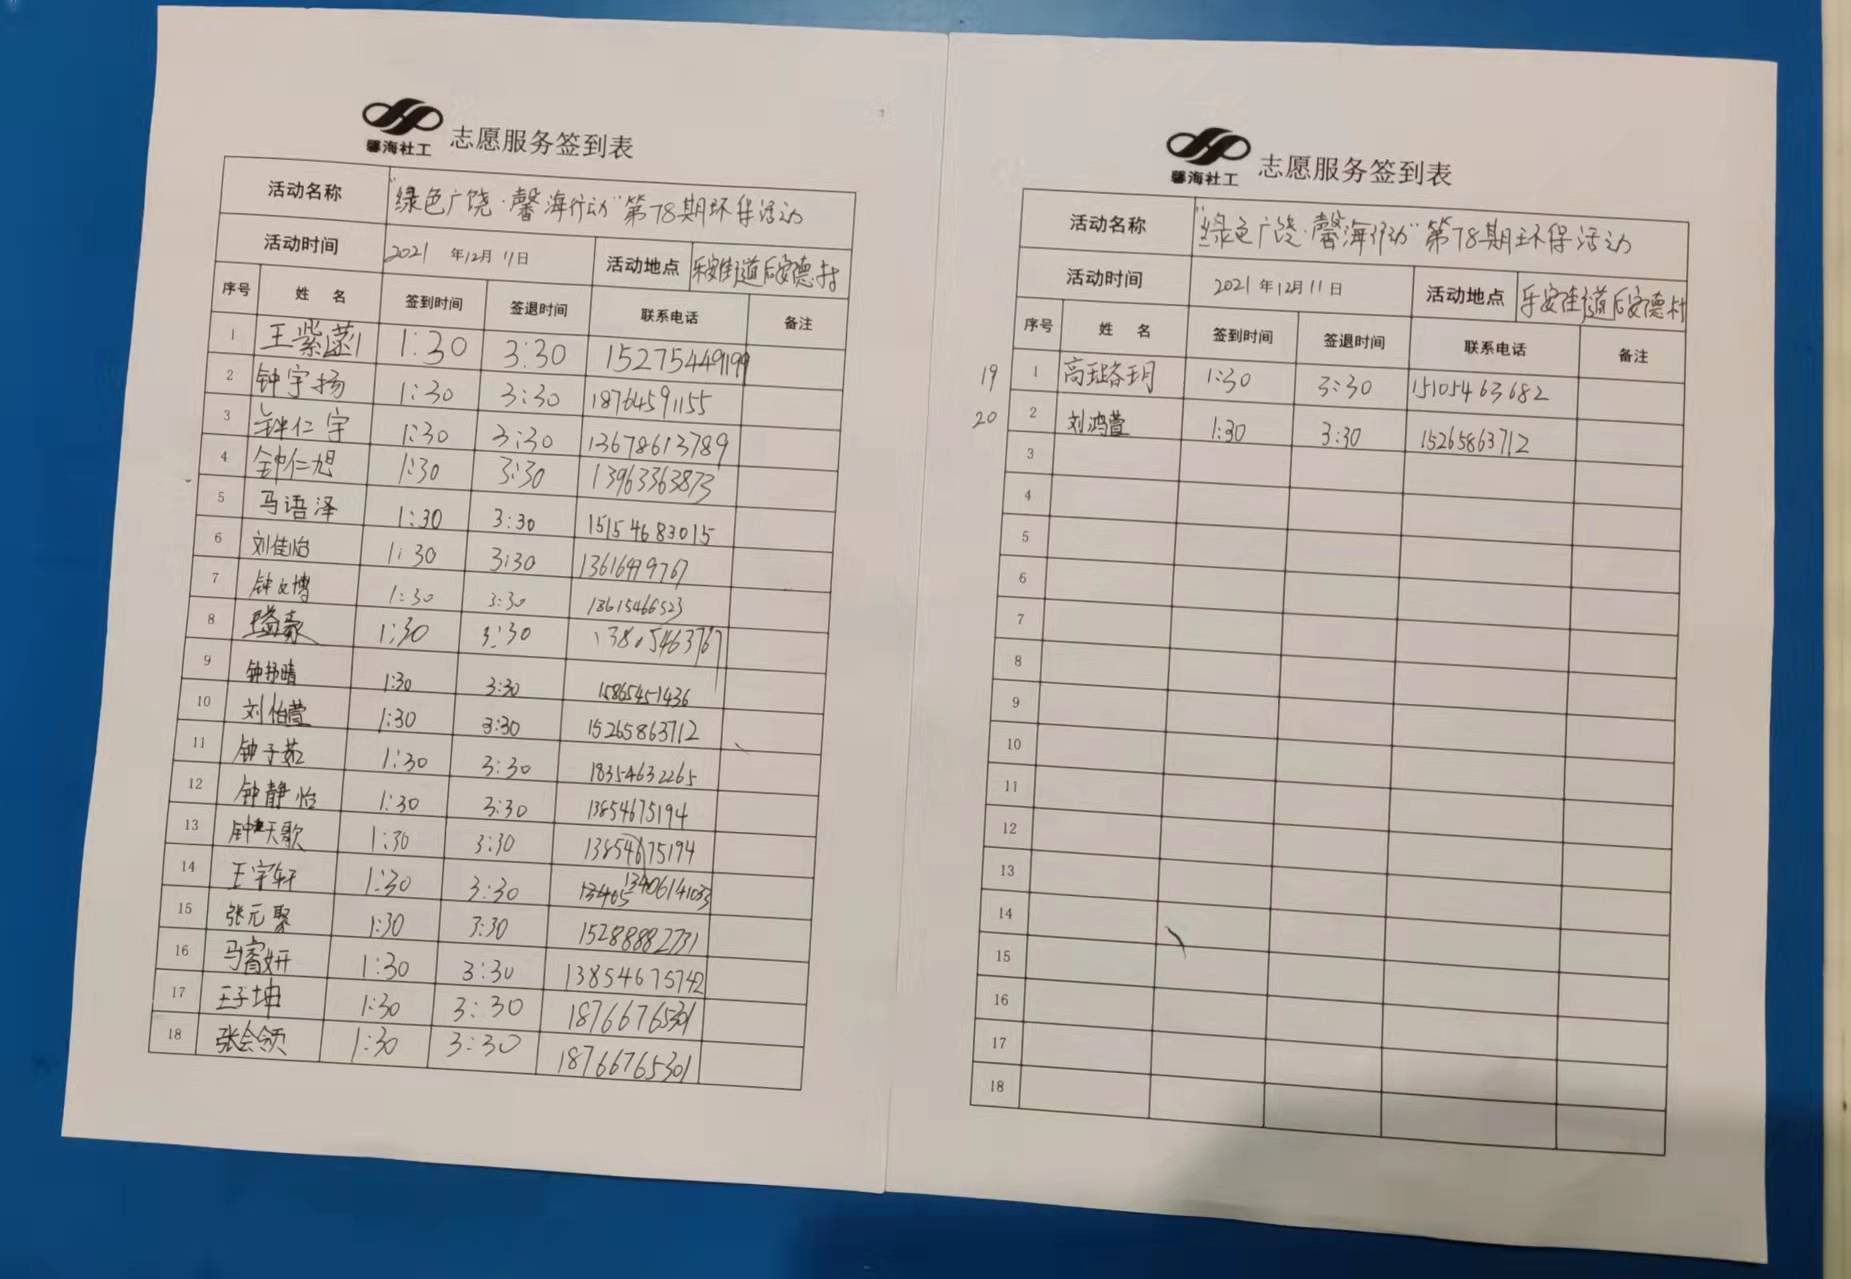 馨海社工 志愿服务签到表
活动名称 "绿色广饶·馨海行动"第78期环保活动
活动时间 2021 年12月 11日 活动地点 乐安街道后安德村
序号 姓 名 签到时间 签退时间 联系电话 备注
1 王紫涵 1:30 3:30 15275449199
2 钟宇扬 1:30 3:30 18764591155
3 钟仁宇 1:30 3:30 13678613789
4 钟仁旭 1:30 3:30 13963363873
5 马语泽 1:30 3:30 15154683015
6 刘佳怡 1:30 3:30
7 钟文博 1:30 3:30 13615466523
8 1:30 3:30 13805463767
9 钟扬晴 1:30 3:30 15865451436
10 刘伯萱 1:30 3:30 15265863712
11 钟子茹 1:30 3:30 18354632265
12 钟静怡 1:30 3:30 13854675194
13 钟天歌 1:30 3:30 13854675194
14 王宇轩 1:30 3:30 13406141033
15 张元聚 1:30 3:30 15288882731
16 马睿妍 1:30 3:30 13854675742
17 王子坤 1:30 3:30 18766765301
18 张会领 1:30 3:30 18766765301
馨海社工 志愿服务签到表
活动名称 "绿色广饶·馨海行动"第78期环保活动
活动时间 2021 年12月 11日 活动地点 乐安街道后安德村
序号 姓 名 签到时间 签退时间 联系电话 备注
19 1 高珞玥 1:30 3:30 15105463682
20 2 刘鸿萱 1:30 3:30 15265863712
3
4
5
6
7
8
9
10
11
12
13
14
15
16
17
18